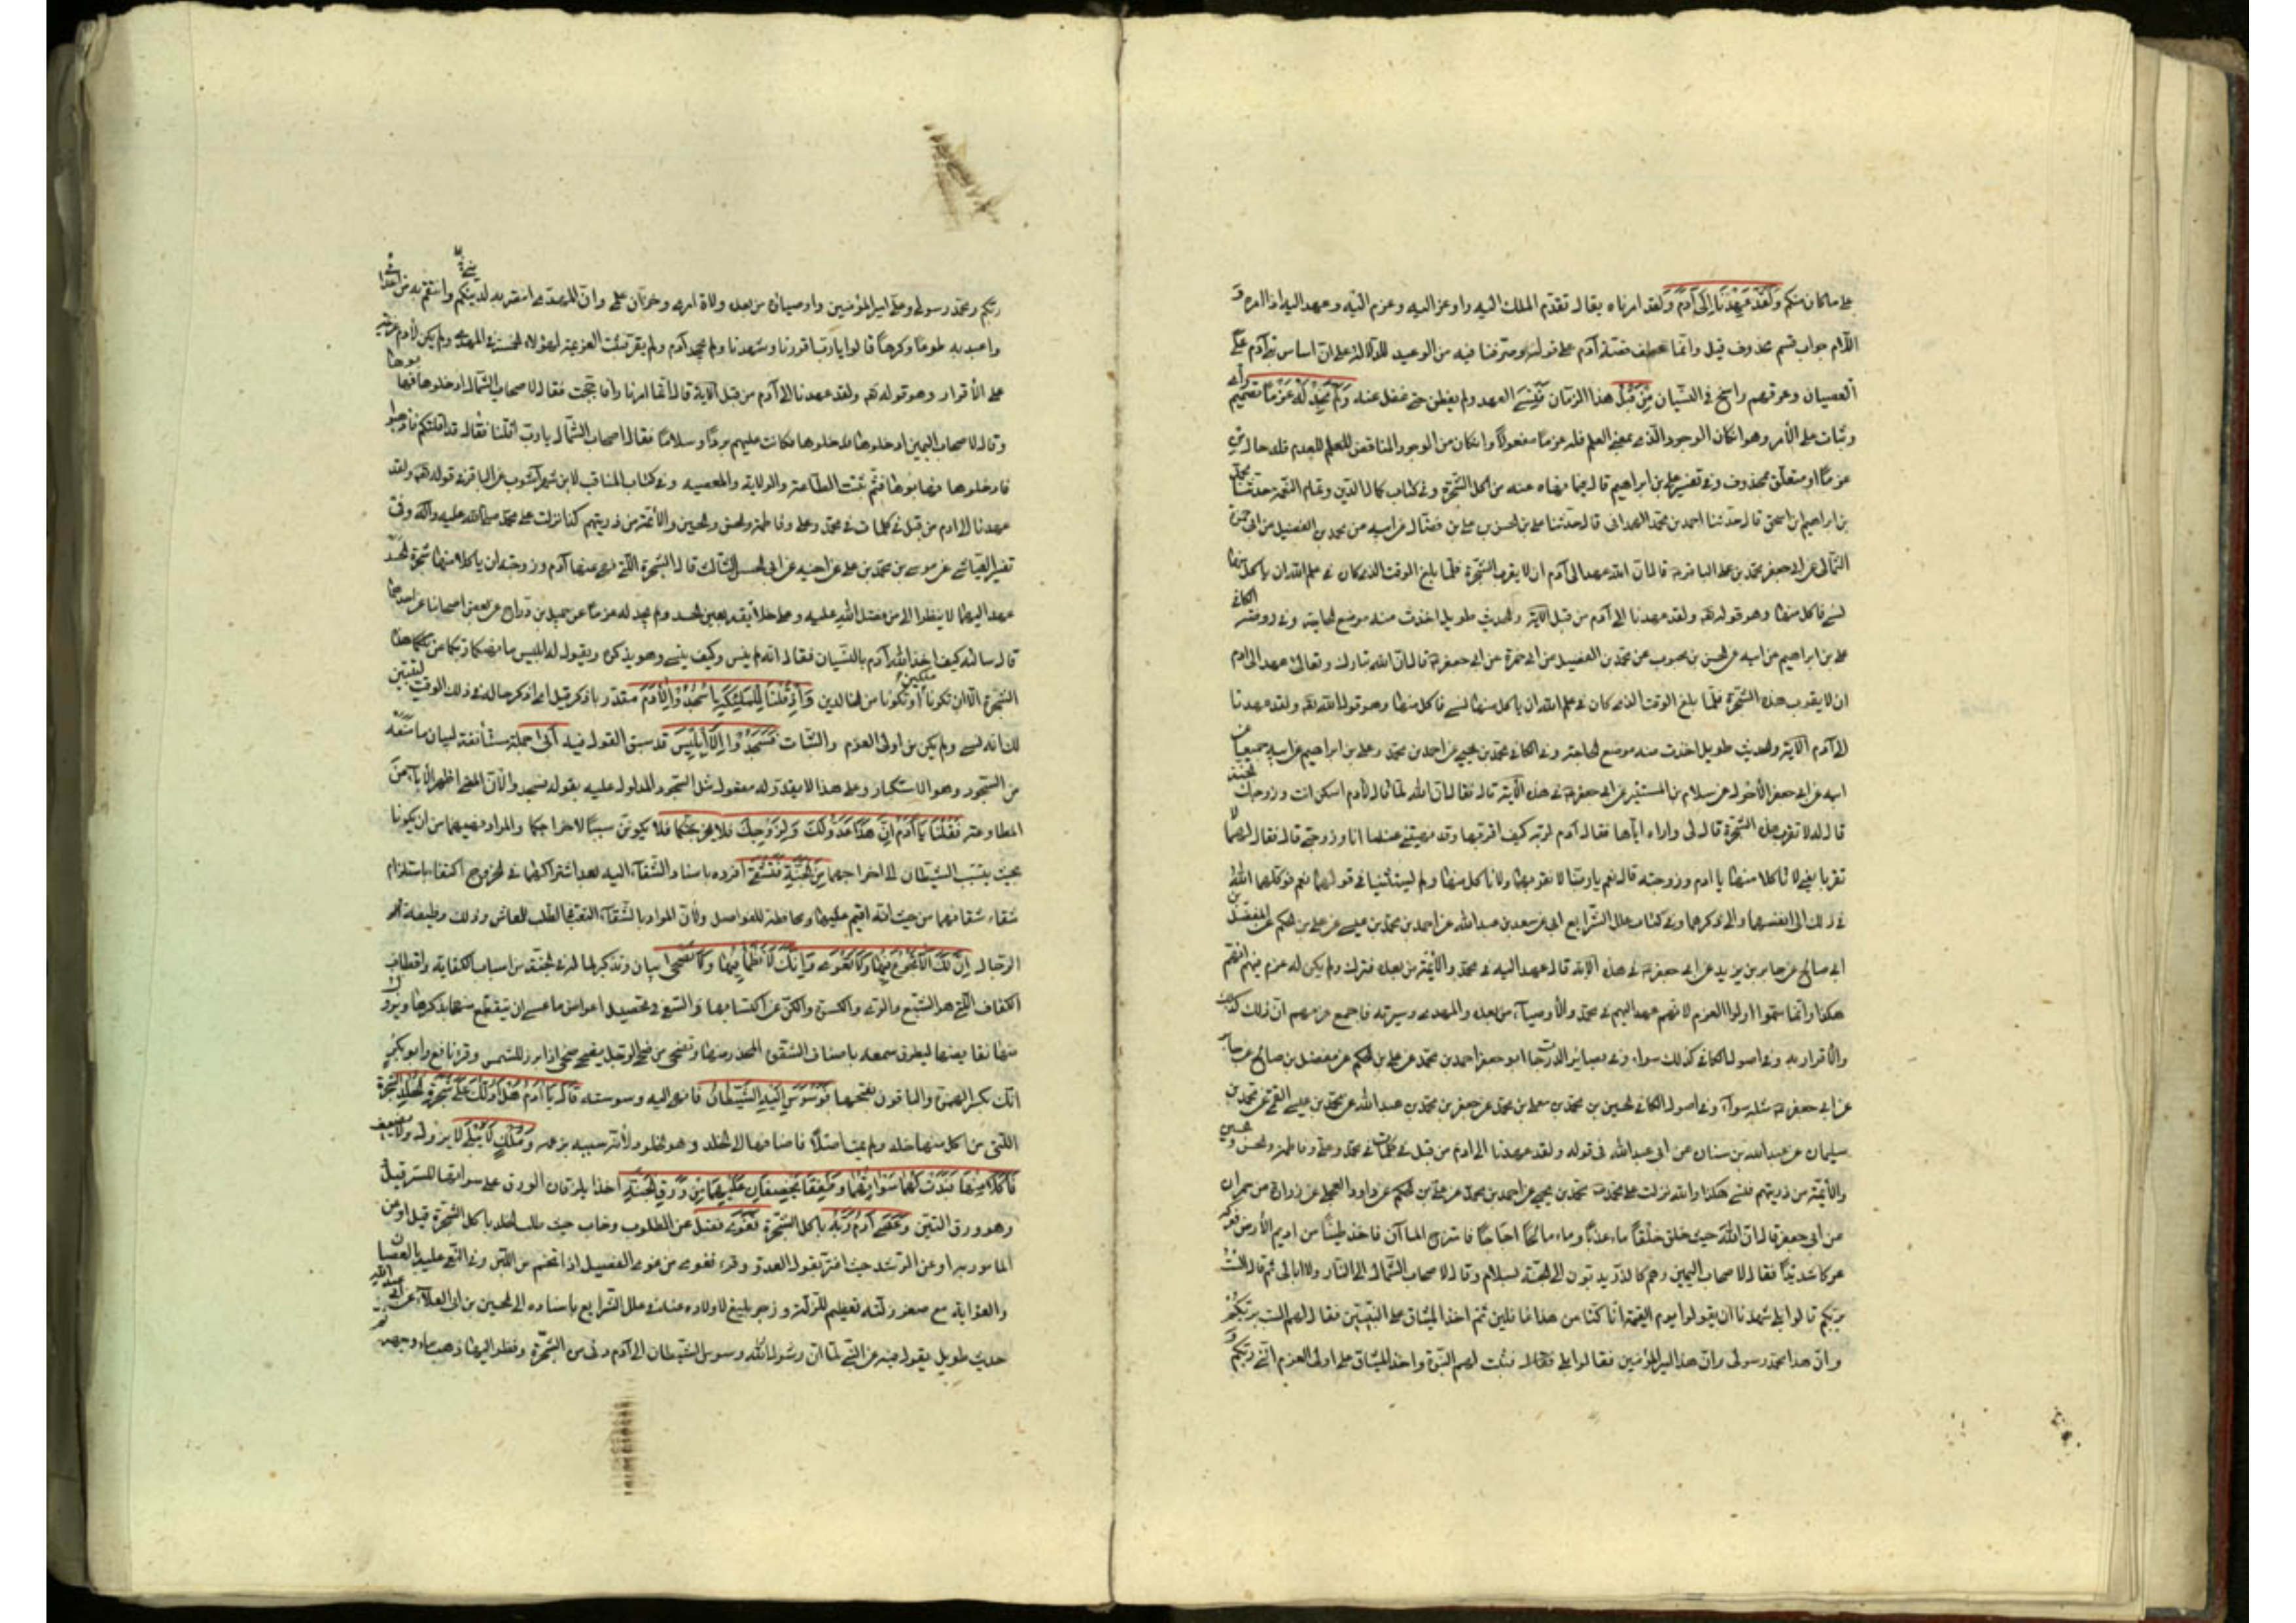 على ما كان منكم وَلَقَدْ عَهِدْنَا إِلَى آدَمَ ولقد امرناه يقال تقدّم الملك اليه واوعز اليه وعزم اليه وعهد اليه اذا امره و
اللام جواب قسم محذوف قيل وانما عطف قصّة آدم على قوله وصرّفنا فيه من الوعيد للدلالة على ان اساس بني آدم على
العصيان وعرقهم راسخ في النسيان مِنْ قَبْلُ هذا الزمان فَنَسِيَ العهد ولم يعن حتى غفل عنه وَلَمْ نَجِدْ لَهُ عَزْمًا تصميم رأي
وثبات على الأمر وهو ان كان الوجود الذي بمعنى العلم فله عزما مفعولاه وان كان من الوجود المناقض للعدم فله حال من
عزما او متعلّق بمحذوف وفي تفسير علي بن ابراهيم قال فيما نهاه عنه من اكل الشجرة وفي كتاب كمال الدين وتمام النعمة حدثنا محمّد
بن ابراهيم بن اسحق قال حدّثنا احمد بن محمّد الهمداني قال حدّثنا علي بن الحسن بن علي بن فضّال عن ابيه عن محمد بن الفضيل عن ابي حمزة
الثمالي عن ابي جعفر محمّد بن علي الباقر قال انّ الله عهد الى آدم ان لا يقرب الشجرة فلمّا بلغ الوقت الذي كان في علم الله ان يأكل منها
نسي فاكل منها وهو قوله تعالى ولقد عهدنا الى آدم من قبل الآية والحديث طويل اخذت منه موضع الحاجة وفي روضة الكافي
علي بن ابراهيم عن ابيه عن الحسن بن محبوب عن محمّد بن الفضيل عن ابي حمزة عن ابي جعفر قال ان الله تبارك وتعالى عهد الى ادم
ان لا يقرب هذه الشجرة فلمّا بلغ الوقت الذي كان في علم الله ان ياكل منها نسي فاكل منها وهو قول الله تعالى ولقد عهدنا
الى آدم الآية والحديث طويل اخذت منه موضع الحاجة وفي الكافي محمّد بن يحيى عن احمد بن محمّد وعلي بن ابراهيم عن ابيه جميعا عن
ابيه عن ابي جعفر الأحول عن سلام بن المستنير عن ابي جعفر في هذه الآية قال فقال انّ الله لمّا قال لآدم اسكن انت وزوجك الجنة
قال له لا تقربا هذه الشجرة قال لى واراه اياها فقال آدم لربّه كيف اقربها وقد نهيتنى عنها انا وزوجتى قال فقال لهما لا
تقرباها يعنى لا تاكلا منها يا ادم وزوجته قال نعم يا ربّنا لا نقربها ولا ناكل منها ولم يستثنيا في قولهما نعم فوكلهما الله
في ذلك الى انفسهما والى ذكرهما وفي كتاب علل الشرايع ابي عن سعد بن عبد الله عن احمد بن محمّد بن عيسى عن علي بن الحكم عن المفضّل بن
ابي صالح عن جابر بن يزيد عن ابي جعفر في هذه الآية قال عهد اليه في محمّد والأئمّة من بعده فترك ولم يكن له عزم فيهم انّهم
هكذا وانّما سمّوا اولوا العزم لانهم عهد اليهم في محمّد والأوصيآء من بعده والمهدى وسيرته فاجمع عزمهم انّ ذلك كذلك
والاقرار به وفي اصول الكافي كذلك سواء وفي بصائر الدرجات ابو جعفر احمد بن محمّد عن علي بن الحكم عن مفضل بن صالح عن جابر
عن ابي جعفر مثله سوآء وفي اصول الكافي الحسين بن محمّد بن معلى بن محمّد عن جعفر بن محمّد بن عبد الله عن محمّد بن عيسى القمي عن محمّد بن
سليمان عن عبد الله بن سنان عن ابي عبد الله في قوله ولقد عهدنا الى ادم من قبل كلمات في محمّد وعلي وفاطمة والحسن والحسين
والأئمّة من ذريتهم فنسى هكذا والله نزلت على محمّد محمّد بن يحيى عن احمد بن محمّد عن علي بن الحكم عن داود العجلى عن زرارة عن حمران
عن ابي جعفر قال انّ الله حيث خلق الخلق خلق ماء عذبًا وماء مالحًا اجاجًا فامتزج الماآن فاخذ طينًا من اديم الأرض فعركه
عركا شديدًا فقال لاصحاب اليمين وهم كالذرّ يدبّون الى الجنّة بسلام وقال لاصحاب الشمال الى النار ولا ابالى ثم قال الست
بربّكم قالوا بلى شهدنا ان يقولوا يوم القيمة انّا كنّا عن هذا غافلين ثمّ اخذ الميثاق على النبيّين فقال لهم الست بربّكم
وانّ هذا محمّد رسولى وانّ هذا علي امير المؤمنين فقالوا بلى فثبتت لهم النبوّة واخذ الميثاق على اولى العزم انّنى ربّكم و
ربّكم ومحمّد رسولى وعلي امير المؤمنين واوصياؤه من بعده ولاة امرى وخزّان علمى وانّ المهدي انتصر به لدينى وانتقم به من اعدائى
واعبد به طوعًا وكرهًا قالوا يا ربّ اقررنا وشهدنا ولم يجحد آدم ولم يقر فثبتت العزيمة لهؤلاء الخمسة في المهدى ولم يكن لآدم عزم
على الأقرار وهو قوله تعالى ولقد عهدنا الى آدم من قبل الآية قال انّما امرنا نارا فاجّجت فقال لاصحاب الشمال ادخلوها فهابوها
وقال لاصحاب اليمين ادخلوها فدخلوها فكانت عليهم بردًا وسلامًا فقال اصحاب الشمال يا ربّ اقلنا فقال قد اقلتكم فاذهبوا
فادخلوها فهابوها فثمّ ثبتت الطاعة والولاية والمعصية وفي كتاب المناقب لابن شهر آشوب عن الباقر في قوله تعالى ولقد
عهدنا الى ادم من قبل كلمات في محمّد وعلي وفاطمة والحسن والحسين والأئمّة من ذريتهم كذا نزلت على محمّد صلى الله عليه وآله وفي
تفسير العياشي عن موسى بن محمّد بن علي عن اخيه عن ابي الحسن الثالث قال الشجرة التي نهى عنها آدم وزوجته ان ياكلا منها شجرة الحسد
عهد اليهما لا ينظرا الى من فضل الله عليه وعلى خلائقه بعين الحسد ولم يجد له عزمًا عن جميل بن درّاج عن بعض اصحابنا عن احدهما
قال سالته كيف اخذ الله آدم بالنسيان فقال انه لم ينس وكيف ينسى وهو يذكره ويقول له ابليس ما نهيكما ربّكما عن هذه
الشجرة الّا ان تكونا ملكين او تكونا من الخالدين وَإِذْ قُلْنَا لِلْمَلَئِكَةِ اسْجُدُوا لِآدَمَ مقدّر باذكر قيل اى اذكر حاله في ذلك الوقت ليتبيّن
لك انه نسى ولم يكن من اولى العزم والثبات فَسَجَدُوا إِلَّا إِبْلِيسَ قد سبق القول فيه أَبَى جملة مستأنفة لبيان ما منعه
من السّجود وهو الاستكبار وعلى هذا لا يقدّر له مفعول مثل السجود المدلول عليه بقوله فسجدوا لانّ المعنى اظهر الأباء عن
المطاوعة فَقُلْنَا يَا آدَمُ إِنَّ هَذَا عَدُوٌّ لَكَ وَلِزَوْجِكَ فَلَا يُخْرِجَنَّكُمَا فلا يكوننّ سببًا لاخراجكما والمراد نهيهما من ان يكونا
بحيث يسبّب الشيطان الى اخراجهما مِنَ الْجَنَّةِ فَتَشْقَى افرده باسناد الشّقآء اليه بعد اشتراكهما في الخروج اكتفاء باستلزام
شقاء شقائهما من حيث انّه قيّم عليها ومحافظة للفواصل ولأنّ المراد بالشّقآء التعب في الطلب للمعاش وذلك وظيفة
الرّجال إِنَّ لَكَ أَلَّا تَجُوعَ فِيهَا وَلَا تَعْرَى وَأَنَّكَ لَا تَظْمَأُ فِيهَا وَلَا تَضْحَى بيان وتذكير لما له في الجنّة من اسباب الكفاية واقطاب
الكفاف الّتي هى الشّبع والرّى والكسوة والكنّ عن اكتسابها والسّعى في تحصيل اعواض ما عسى ان ينقطع منها بذكر
نقايضها ليطرق سمعه باصناف الشقوة المحذّر منها وتضحى من ضحى الرجل يضحى ضحى اذا برز للشمس وقرأ نافع وابو بكر
انّك بكسر الهمزة والباقون بفتحها فَوَسْوَسَ إِلَيْهِ الشَّيْطَانُ فانهى اليه وسوسته قَالَ يَا آدَمُ هَلْ أَدُلُّكَ عَلَى شَجَرَةِ الْخُلْدِ الشجرة
الّتى من اكل منها خلد ولم يمت اصلًا فاضافها الى الخلد وهو الخلود لأنّه سببه بزعمه وَمُلْكٍ لَا يَبْلَى لا يزول ولا يضعف
فَأَكَلَا مِنْهَا فَبَدَتْ لَهُمَا سَوْآتُهُمَا وَطَفِقَا يَخْصِفَانِ عَلَيْهِمَا مِنْ وَرَقِ الْجَنَّةِ اخذا يلزقان الورق على سوآتهما للستر قيل
وهو ورق التين وَعَصَى آدَمُ رَبَّهُ باكل الشجرة فَغَوَى فضلّ عن المطلوب وخاب حيث طلب الخلد باكل الشجرة قيل او عن
المامور به او عن الرّشد حيث اغترّ بقول العدوّ وقرئ فغوى من غوى الفصيل اذا اتخم من اللبن وفي النعى عليه بالعصيان
والغواية مع صغر زلّته تعظيم للزلّة وزجر بليغ لاولاده عنها وفي علل الشرايع باسناده الى الحسين بن ابي العلآء عن ابي عبد الله
حديث طويل يقول فيه عن النبي لمّا ان وسوس الشيطان الى آدم دنى من الشّجرة ونظر اليها ذهب ماء وجهه